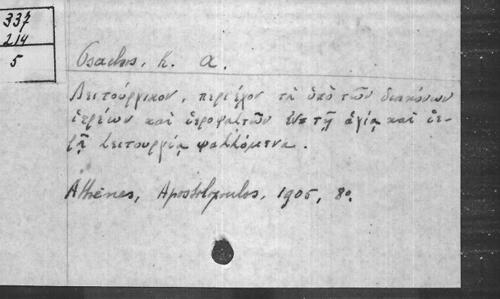 337
214
5
Psachos, K. A.
Λειτούργικον, περιέχον τὰ ὑπὸ τῶν διακόνων
ἱερέων καὶ ἱεροψαλτῶν ἐν τῇ ἁγίᾳ καὶ ἱε-
ρᾷ λειτουργίᾳ ψαλλόμενα.
Athènes, Apostolopoulos, 1905, 8o.